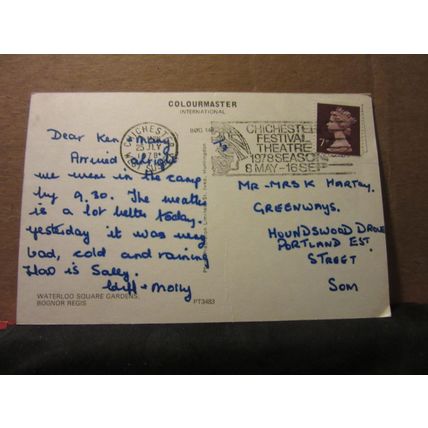 COLOURMASTER
INTERNATIONAL
CHICHESTER
25 JLY
1978
CHICHESTER
FESTIVAL
THEATRE
1978 SEASON
8 MAY-16 SEP
7P
Dear Ken & Mary
Arrived alright
we were in the camp
by 9.30. The weather
is a lot better today.
yesterday it was very
bad, cold and raining
How is Sally.
Cliff & Molly
MR & MRS K HARTRY,
GREENWAYS.
HOUNDSWOOD DROVE
PORTLAND EST.
STREET
SOM
WATERLOO SQUARE GARDENS,
BOGNOR REGIS
PT3483